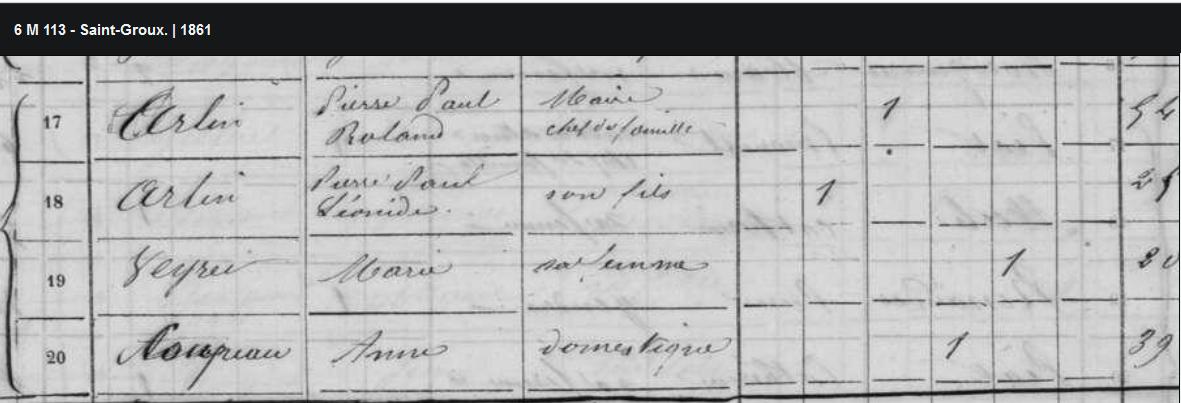 6 M 113 - Saint-Groux. | 1861
17 Arlin Pierre Paul Maire 1 54
Roland chef de famille
18 Arlin Pierre Paul son fils 1
Léonide.
19 Marie sa femme 1
20 Anne domestique 1 39